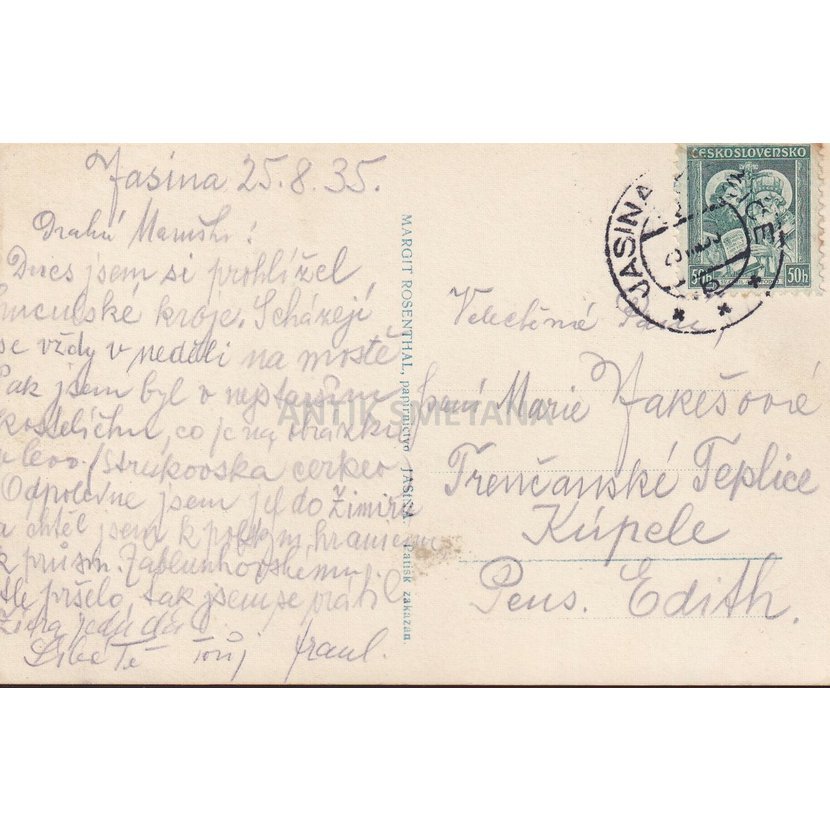 Jasina 25.8.35.
Drahá Mamičko!
Dnes jsem si prohlížel
huculské kroje. Scházejí
se vždy v neděli na mostě
Pak jsem byl v nejstarším
kostelíčku, co je na obrázku
vlevo /Strukovska cerkev
Odpoledne jsem jel do
a chtěl jsem k polským hranicím
k průsm. Jablunkovskému
Ale pršelo, tak jsem se vrátil
Zítra jedu dál
Líbá Tě Tvůj
MARGIT ROSENTHAL, papírnictvo JASINA Patisk zakázan.
ČESKOSLOVENSKO
50h 50h
JASINA
Velectěná Paní,
Marie Jakešová
Trenčanské Teplice
Kúpele
Pens. Edith.
ANTIK SMETANA